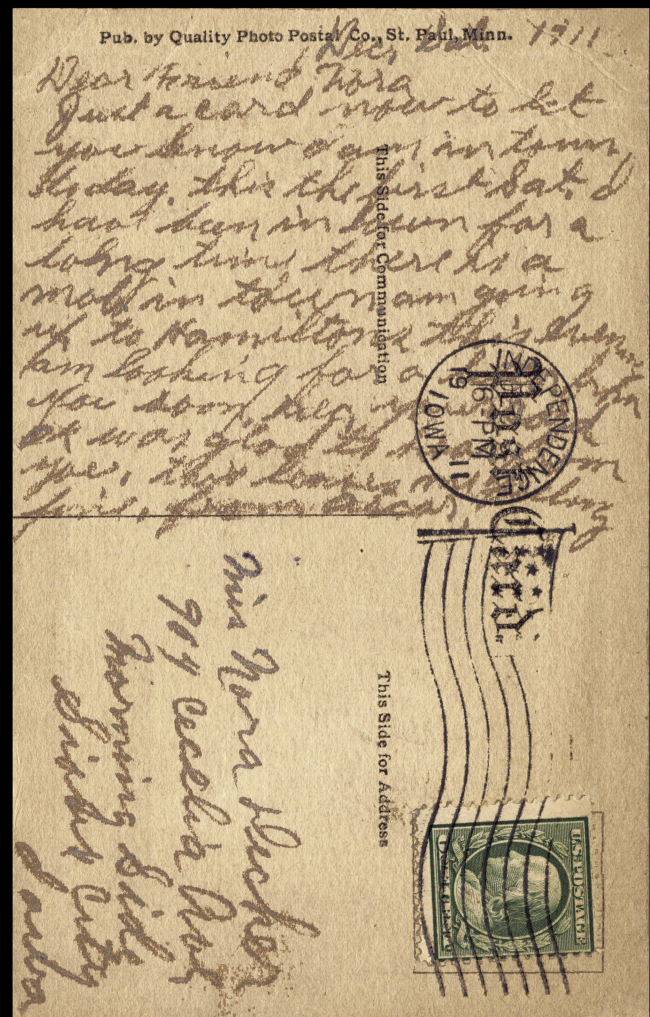 Pub. by Quality Photo Postal Co., St. Paul, Minn.
Dec, Sat. 1911
Dear Friend Nora
Just a card now to let
you know I am in town
today. this the first Sat. I
have bun in town for a
long time there is a
mob in town am going
up to Hamiltons this
am looking for a
you soon,
was glad to
you, this leaves
fine, from Oscar,
This Side for Communication
INDEPENDENCE
6-PM
19 11
IOWA
Post Card
This Side for Address
U.S. POSTAGE
Miss Nora Decker
904 Cecelia Ave
Morning Side
Sioux City
Iowa